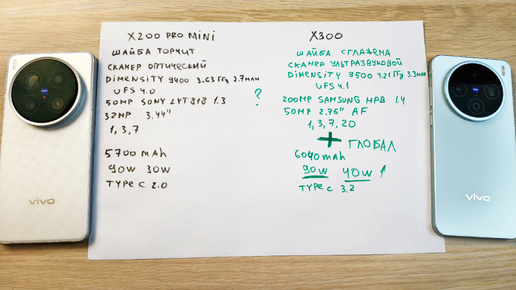 X200 PRO MINI
ШАЙБА ТОРЧИТ
СКАНЕР ОПТИЧЕСКИЙ
DIMENSITY 9400 3.63ГГц 2.7МЛН
UFS 4.0
50MP SONY LYT818 1.3
32MP 3.44"
1,3,7
5700 mAh
90W 30W
TYPE C 2.0
?
X300
ШАЙБА СГЛАЖЕНА
СКАНЕР УЛЬТРАЗВУКОВОЙ
DIMENSITY 9500 4.21ГГц 3.3МЛН
UFS 4.1
200MP SAMSUNG HPB 1.4
50MP 2.76" AF
1,3,7,20
+ ГЛОБАЛ
6040 mAh
90W 40W
TYPE C 3.2
vivo
vivo